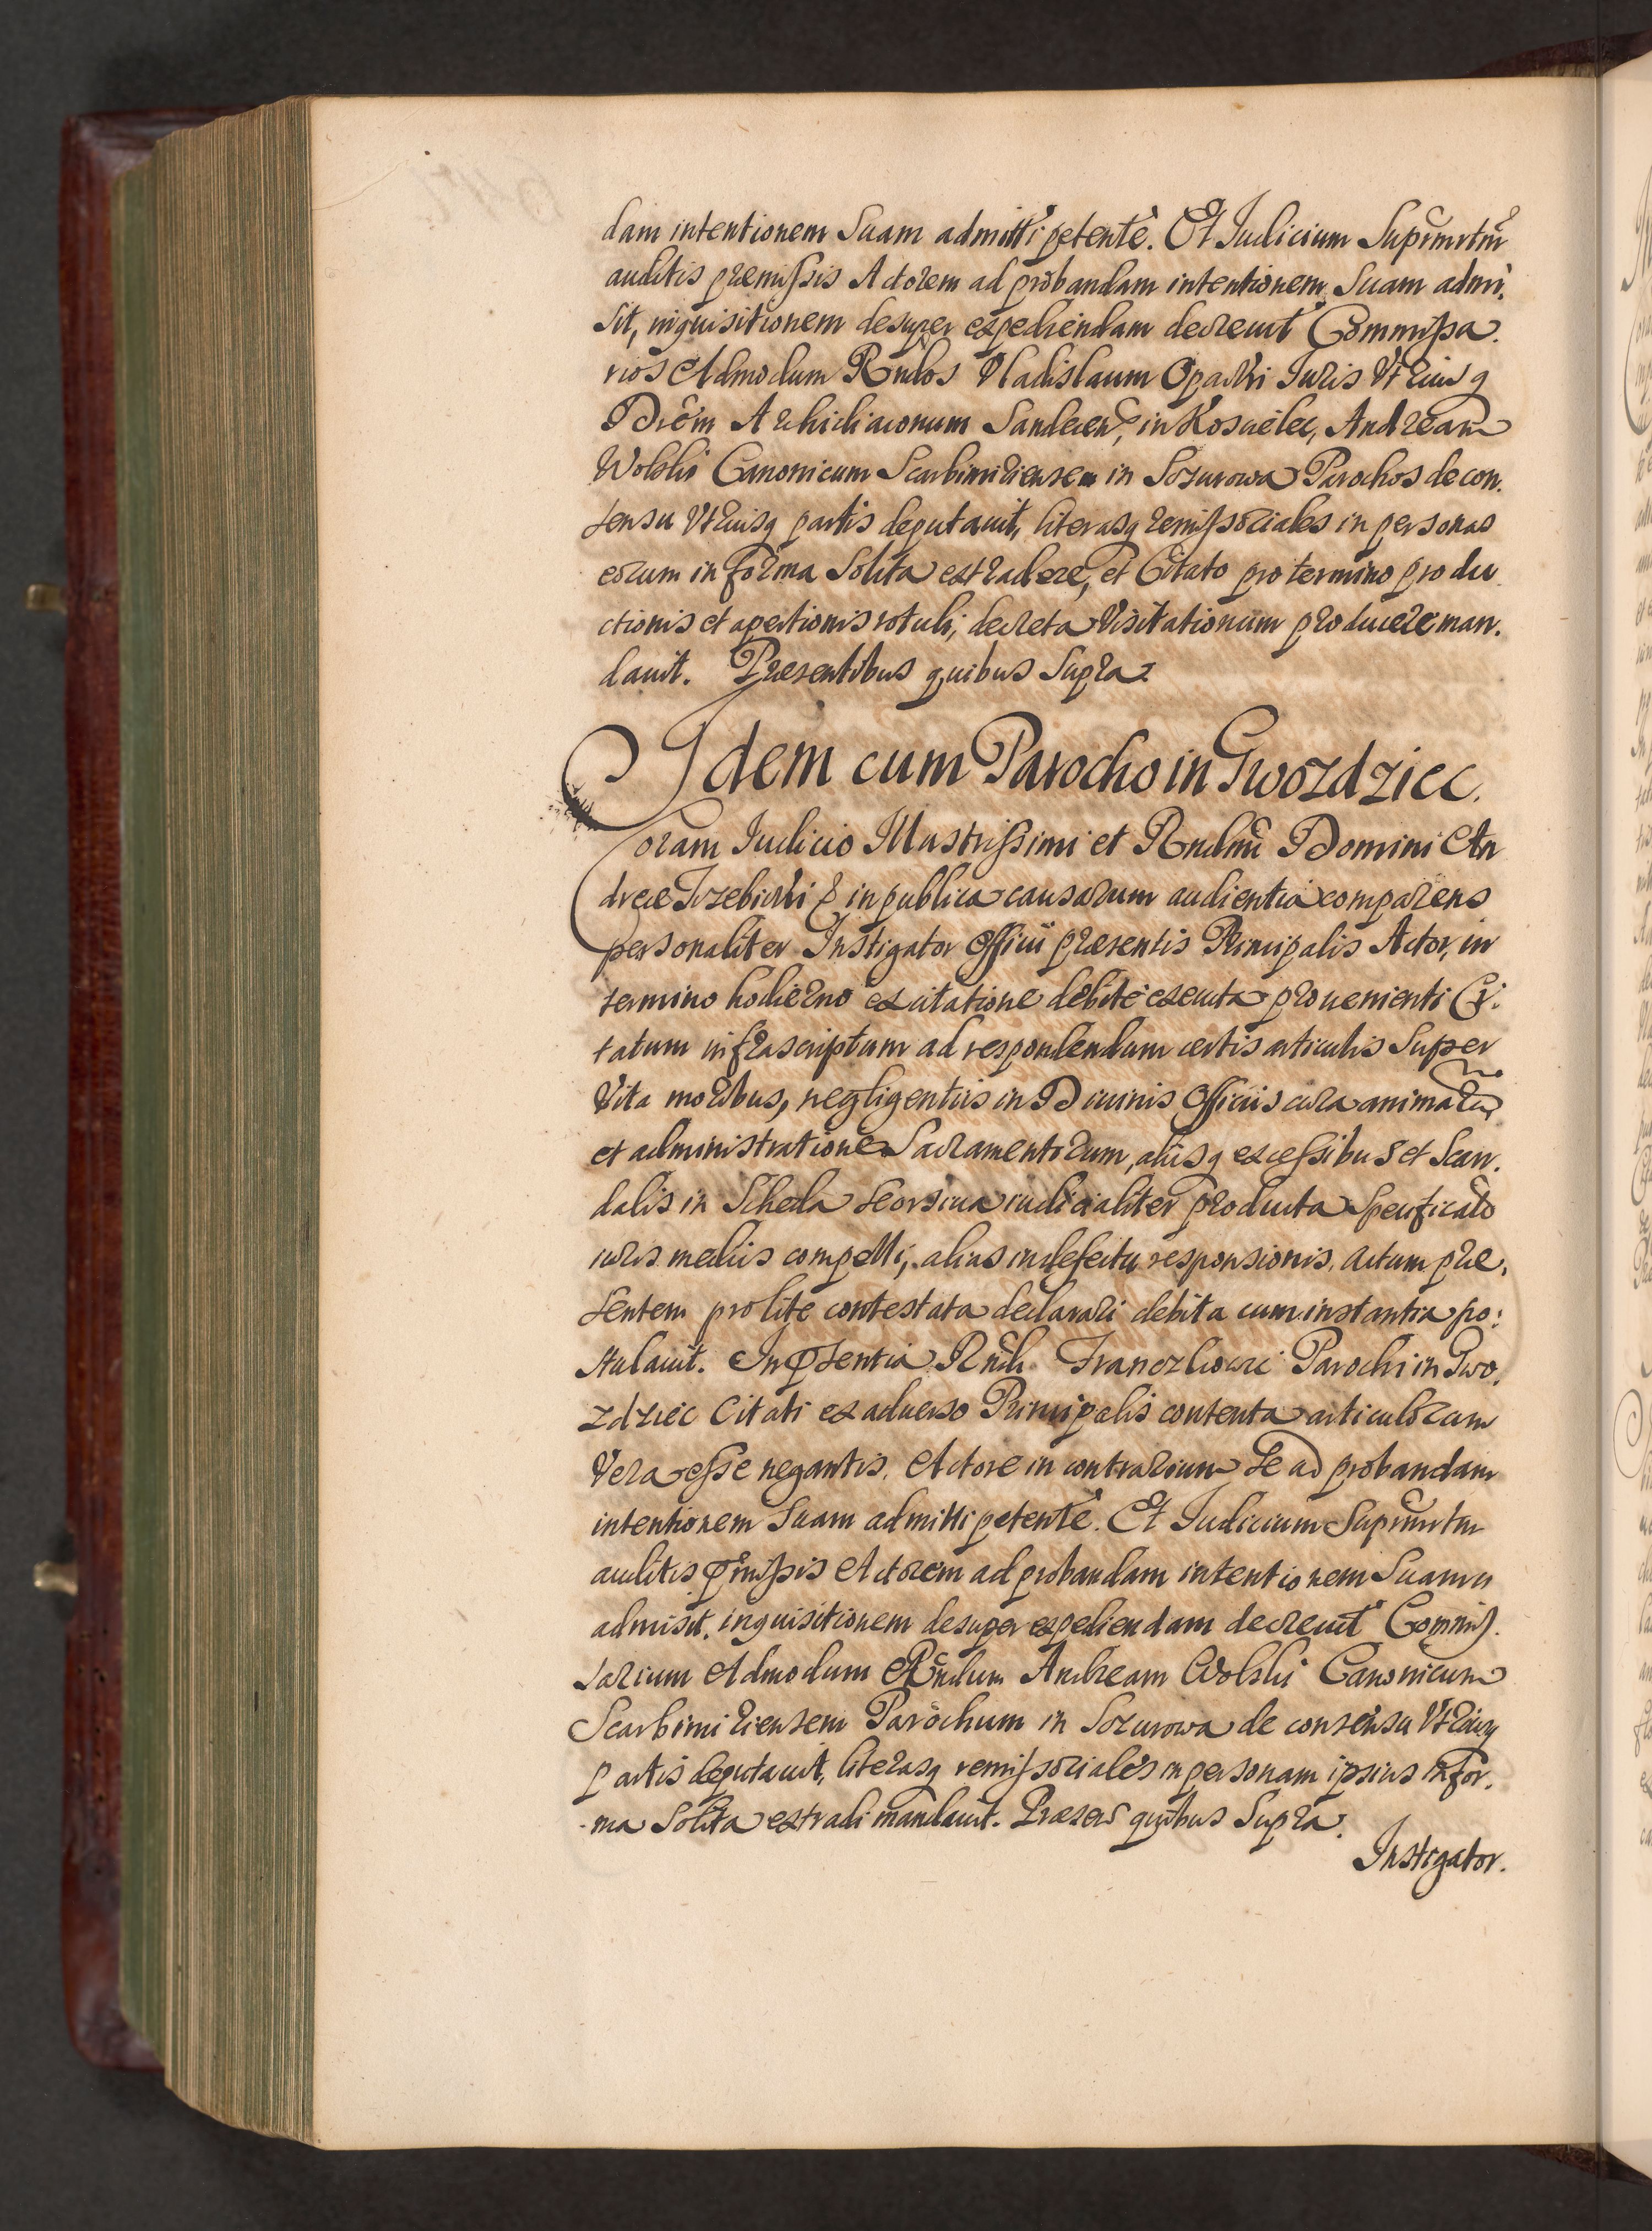 dam intentionem Suam admitti petente. Et Iudicium Suprmrtm
auditis præmissis Actorem ad probandam intentionem Suam admi,
sit, inquisitionem desuper expediendam decreuit Commissa.
rios Admodum Rndos Vladislaum Opacki Iuris Vtriusq
Drem Archidiaconum Sandecen, in Koscielec, Andream
Wolski Canonicum Scarbimiriensem in Sczurowa Parochos de con.
sensu Vtriusq partis deputauit, literasq remissoriales in personas
eorum in forma Solita extradere, et Citato pro termino produ
ctionis et apertionis rotuli, decreta Visitationum producere man.
dauit. Præsentibus quibus Supra.
Idem cum Parocho in Gwozdziec.
Coram Iudicio Illustrissimi et Rndmi Domini An
dreæ Trzebicki & in publica causarum audientia comparens
personaliter Instigator Officii præsentis Principalis Actor, in
termino hodierno ex citatione debite executa prouenienti Ci:
tatum infrascriptum ad respondendum certis articulis Super
Vita moribus, negligentiis in Diuinis Officiis cura animaru
et administratione Sacramentorum, aliisq excessibus et Scan.
dalis in Scheda Seorsiua iudicialiter producta Specificatis
iuris mediis compelli, alias in defectu responsionis, actum præ,
sentem pro lite contestata declarari debita cum instantia po:
stulauit. In pntia Rndi Franczkowic Parochi in Gwo,
zdziec Citati ex aduerso Principalis contenta articulorum
Vera esse negantis. Actore in contrarium Se ad probandam
intentionem Suam admitti petente. Et Iudicium Suprmrtm
auditis pmissis Actorem ad probandam intentionem Suam
admisit, inquisitionem desuper expediendam decreuit Commis.
sarium Admodum Rndum Andream Wolski Canonicum
Scarbimiriensem Parochum in Sczurowa de consensu Vtriusq
partis deputauit, literasq remissoriales in personam ipsius in for.
ma Solita extradi mandauit. Præsen quibus Supra.
Instigator.